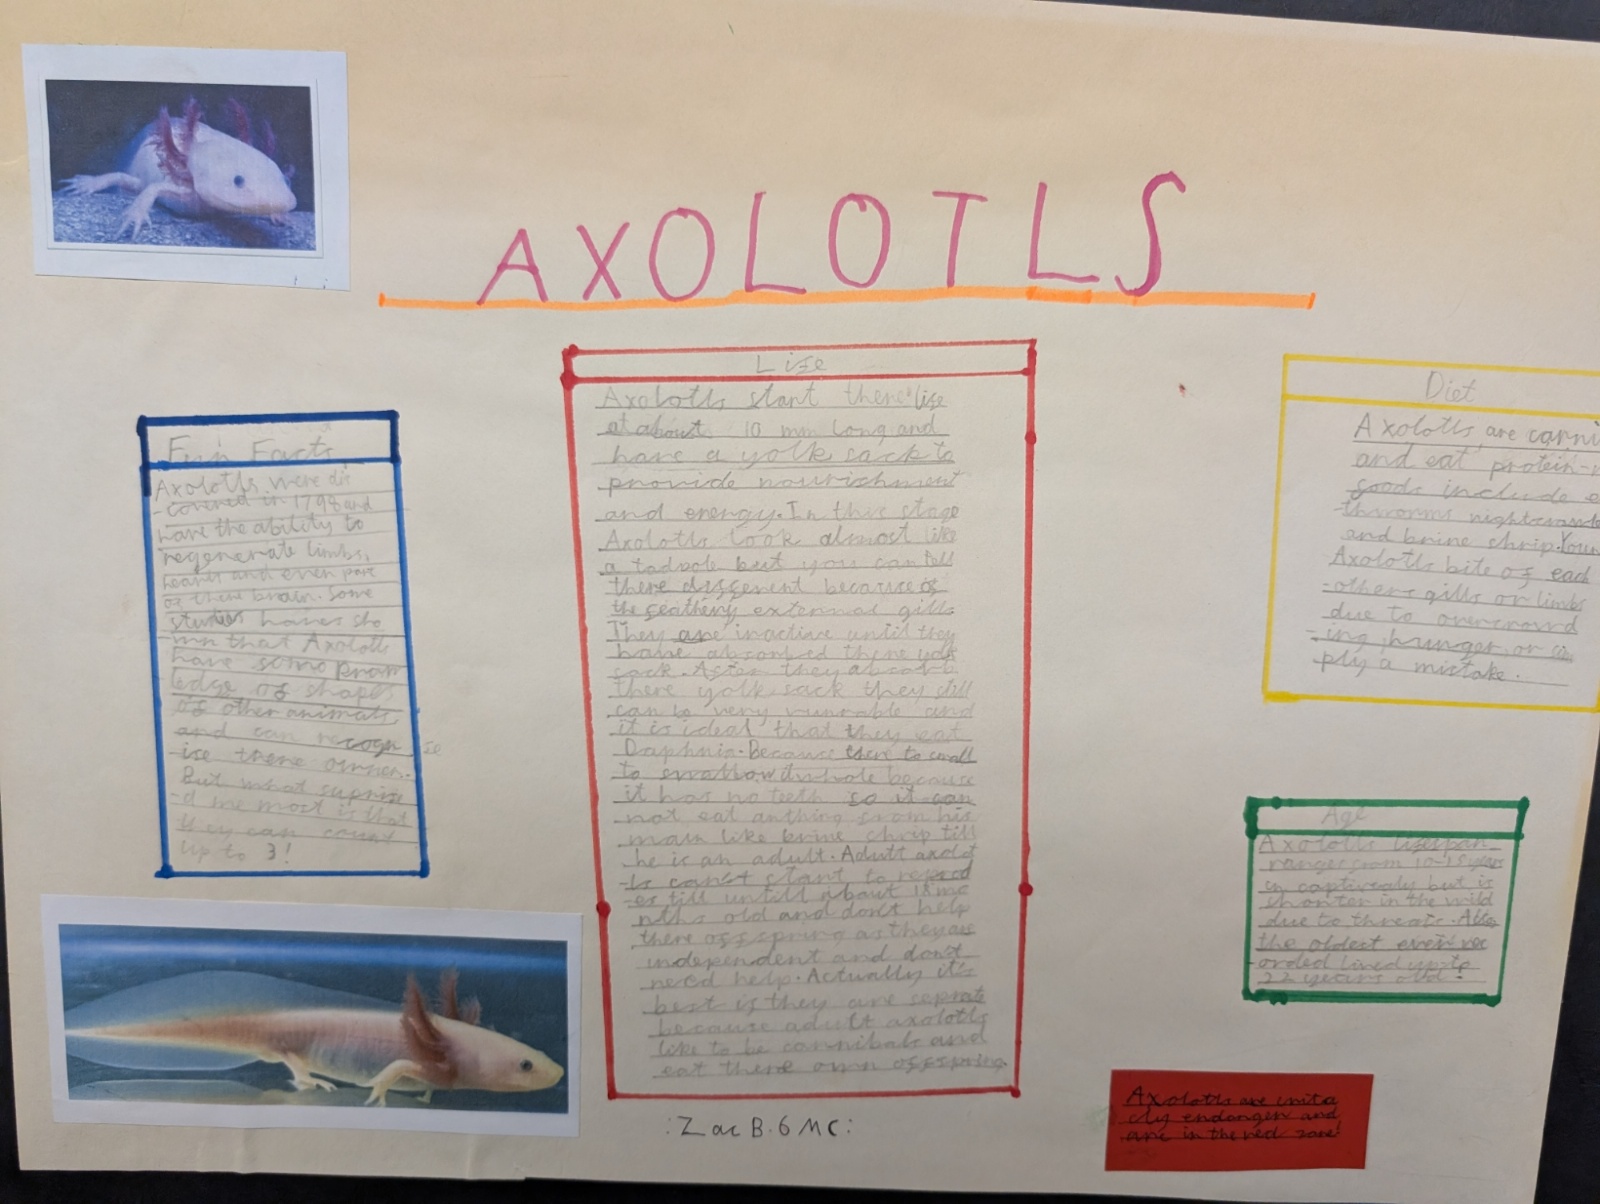 AXOLOTLS
Fun Facts
Axolotls were dis
-covered in 1798 and
have the ability to
regenerate limbs,
hearts and even part
of their brain. Some
studies haves sho
-wn that Axolotls
have some
-ledge of shapes
of other animals,
and can recogn
-ise there owner.
But what suprise
-d me most is that
they can count
up to 3!
Life
Axolotls start there life
at about 10 mm long and
have a yolk sack to
provide nourishment
and energy. In this stage
Axolotls look almost like
a tadpole but you can tell
there different because of
the feathery external gills
They are inactive until they
have absorbed there yolk
sack. After they absorb
there yolk sack they still
can be very and
it is ideal that they eat
Daphnia. Because there to small
to swallow it whole because
it has no teeth so it can
not eat anthing from his
main like brine chrip till
he is an adult. Adult axolot
-ls can't start to reprod
till untill about 18 mo
nths old and don't help
there offspring as they are
independent and don't
need help. Actually it's
best if they are seprate
because adult axolotls
like to be cannibals and
eat there own offspring.
:Zac B. 6MC:
Diet
Axolotls are carni
and eat protein-r
foods include e
thworms nightcrawle
and brine chrip. Youn
Axolotls bite of each
-others gills or limbs
due to overcrowd
-ing, hunger or si
ply a mistake.
Age
Axolotls lifespan
ranges from 10-15 years
in but is
shorter in the wild
due to threats. Also
the oldest ever rec
-orded lived up to
22 years old!
Axolotls are
endanger and
are in the red zone!